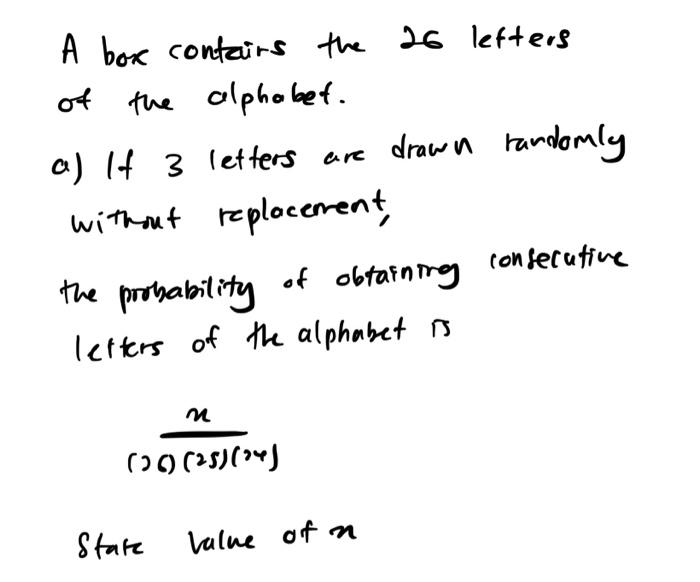 A box contains the 26 letters
of the alphabet.
a) If 3 letters are drawn randomly
without replacement,
the probability of obtaining consecutive
letters of the alphabet is
n
(26)(25)(24)
State value of n